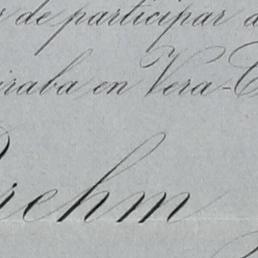 de participar a
iraba en Vera-C
rehm